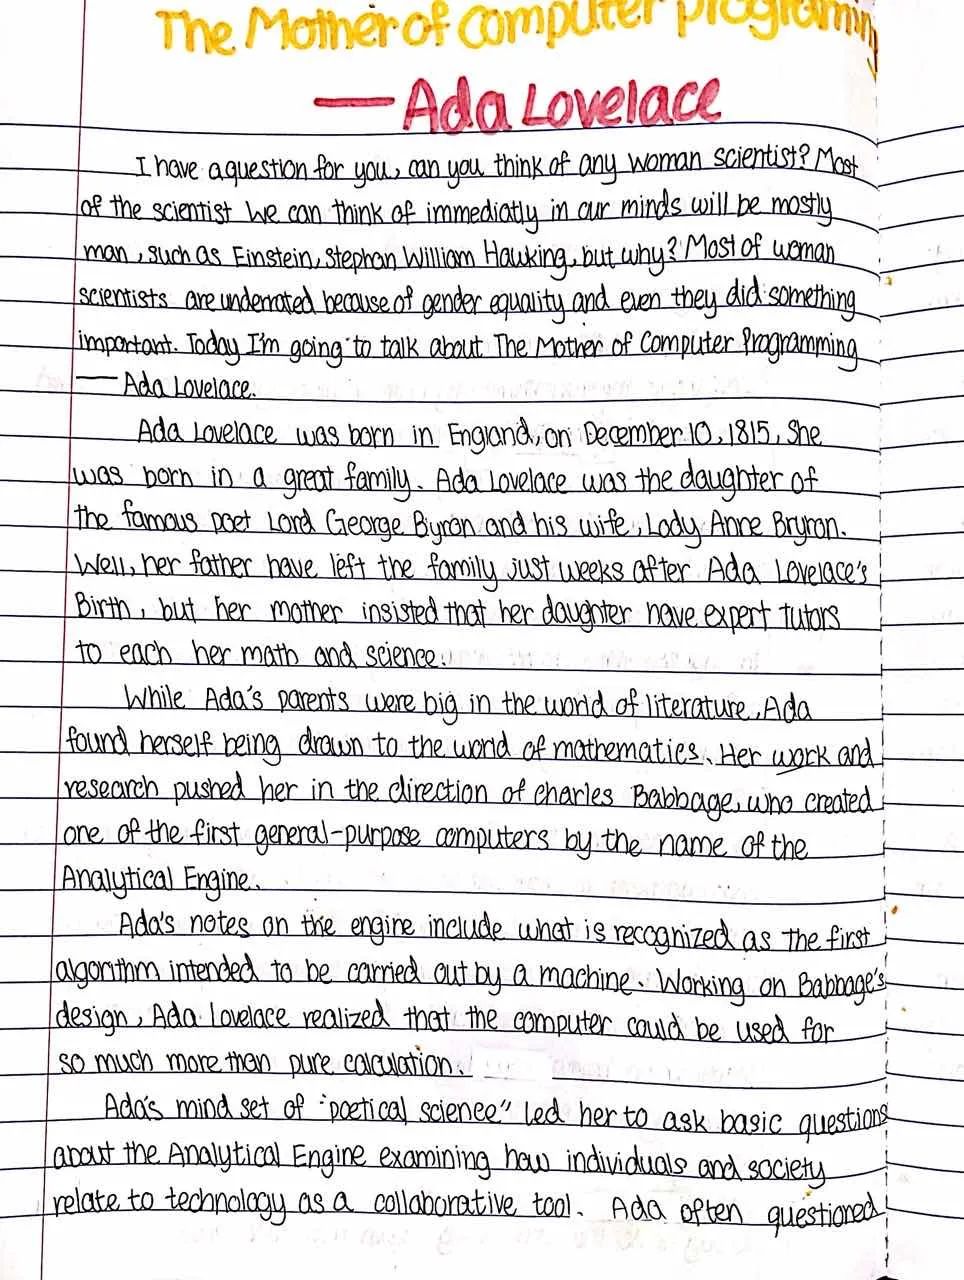 The Mother of Computer programing
— Ada Lovelace
I have a question for you, can you think of any woman scientist? Most
of the scientist we can think of immediatly in our minds will be mostly
man, such as Einstein, Stephan William Hawking, but why? Most of woman
scientists are underrated because of gender equality and even they did something
important. Today I'm going to talk about The Mother of Computer Programming
— Ada Lovelace.
Ada Lovelace was born in England, on December 10, 1815, She
was born in a great family. Ada Lovelace was the daughter of
the famous poet Lord George Byron and his wife, Lady Anne Bryron.
Well, her father have left the family just weeks after Ada Lovelace's
Birth, but her mother insisted that her daughter have expert tutors
to each her math and science.
While Ada's parents were big in the world of literature, Ada
found herself being drawn to the world of mathematics. Her work and
research pushed her in the direction of charles Babbage, who created
one of the first general-purpose computers by the name of the
Analytical Engine.
Ada's notes on the engine include what is recognized as the first
algorithm intended to be carried out by a machine. Working on Babbage's
design, Ada Lovelace realized that the computer could be used for
so much more than pure calculation.
Ada's mind set of "poetical science" led her to ask basic questions
about the Analytical Engine examining how individuals and society
relate to technology as a collaborative tool. Ada often questioned